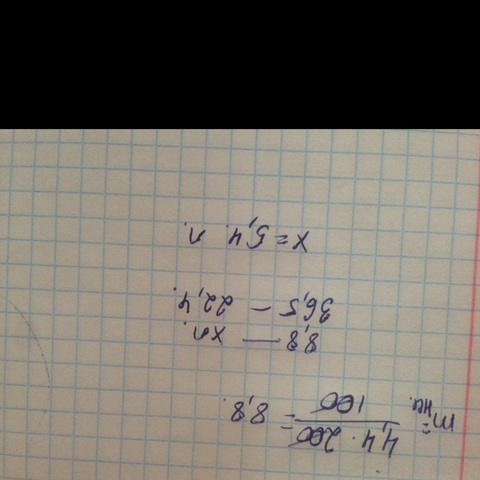 m HCl = 4,4 · 200 / 100 = 8,8.
8,8 — x л.
36,5 — 22,4.
x = 5,4 л.